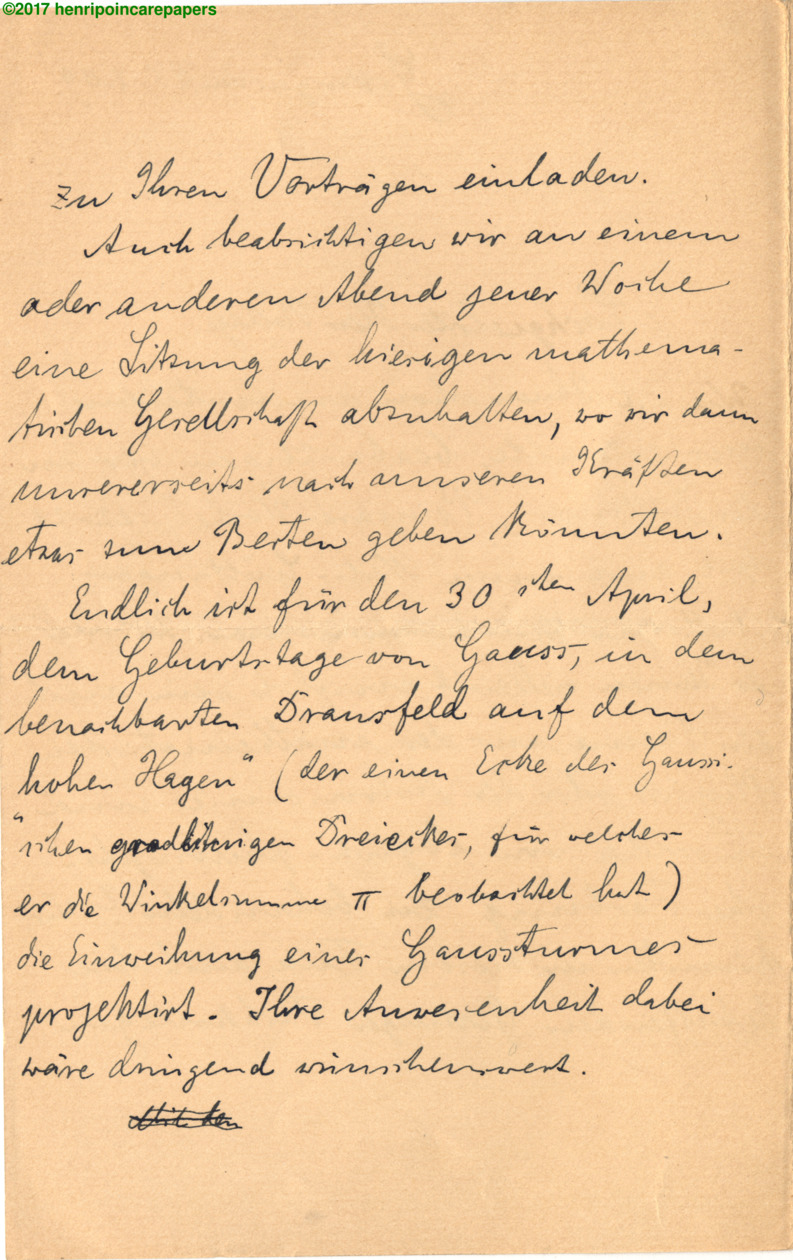 ©2017 henripoincarepapers
zu Ihren Vorträgen einladen.
Auch beabsichtigen wir an einem
oder anderen Abend jener Woche
eine Sitzung der hiesigen mathema-
tischen Gesellschaft abzuhalten, wo wir dann
unsererseits nach unseren Kräften
etwas zum Besten geben könnten.
Endlich ist für den 30 sten April,
dem Geburtstage von Gauss, in dem
benachbarten Dransfeld auf dem
hohen Hagen" (der einen Ecke des Gaussi-
"schen gradlinigen Dreiecks, für welches
er die Winkelsumme π beobachtet hat)
die Einweihung eines Gaussturmes
projektirt. Ihre Anwesenheit dabei
wäre dringend wünschenswert.
Mit den